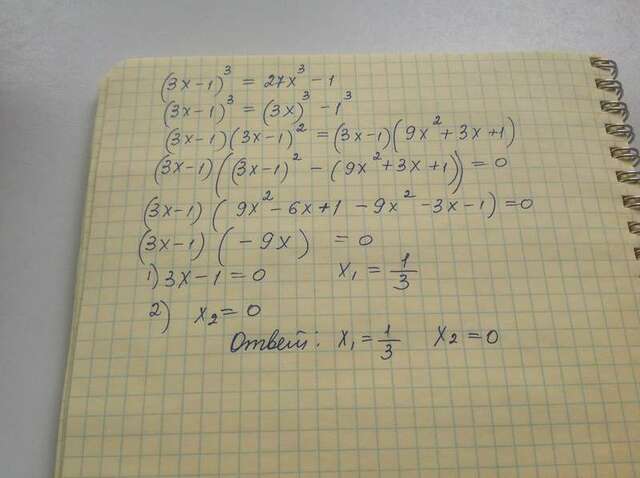 (3x-1)³ = 27x³ - 1
(3x-1)³ = (3x)³ - 1³
(3x-1)(3x-1)² = (3x-1)(9x² + 3x + 1)
(3x-1)((3x-1)² - (9x² + 3x + 1)) = 0
(3x-1)(9x² - 6x + 1 - 9x² - 3x - 1) = 0
(3x-1)(-9x) = 0
1) 3x - 1 = 0 x₁ = 1/3
2) x₂ = 0
Ответ: x₁ = 1/3 x₂ = 0